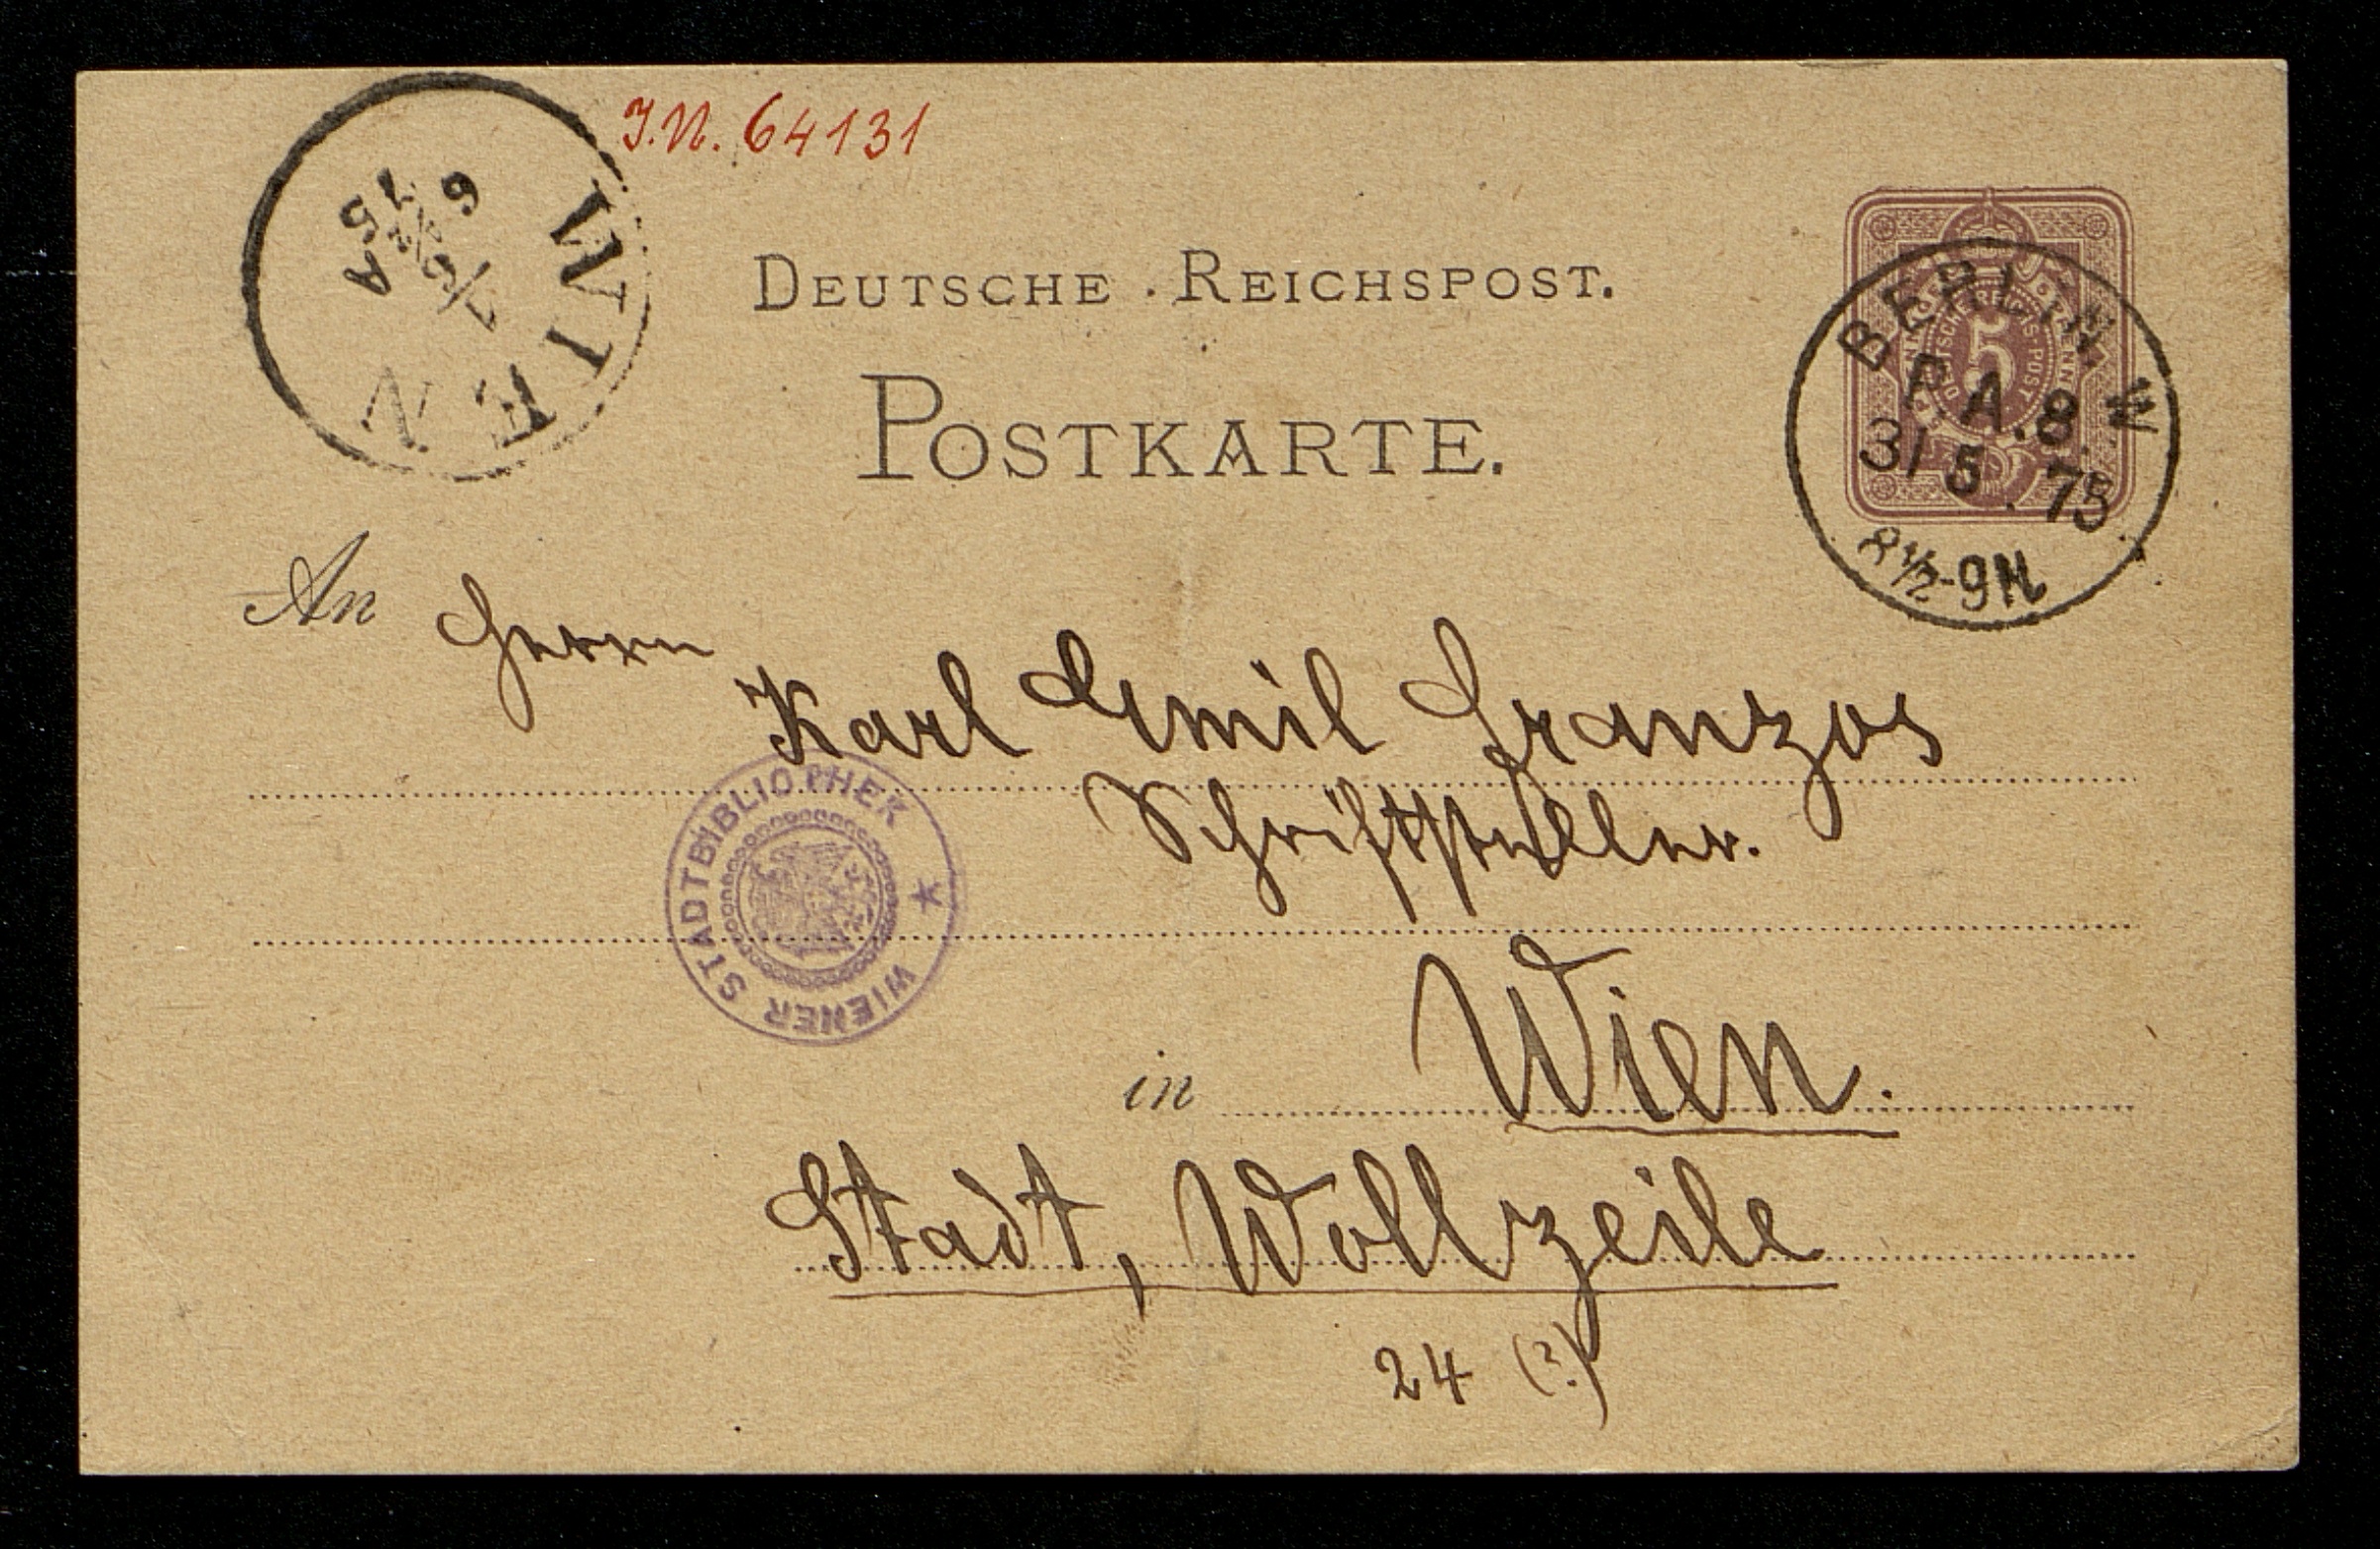 J.N. 64131
WIEN
DEUTSCHE REICHSPOST.
POSTKARTE.
5
BERLIN W
P.A.8.
31 5. 75
8½-9N
An Herrn
Karl Emil Franzos
Schriftsteller.
WIENER STADTBIBLIOTHEK
in Wien.
Stadt, Wollzeile
24 (?)